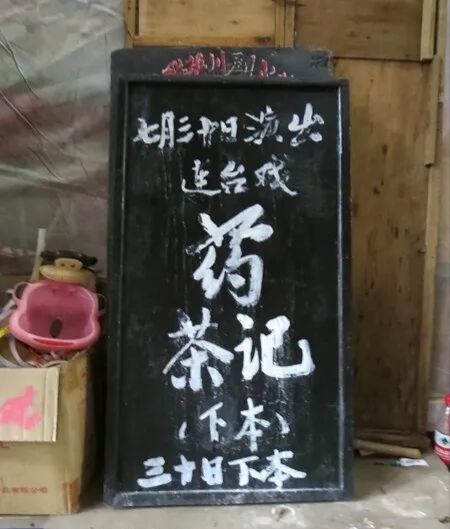 七月三十日演出
连台戏
药
茶记
(下本)
三十日下本